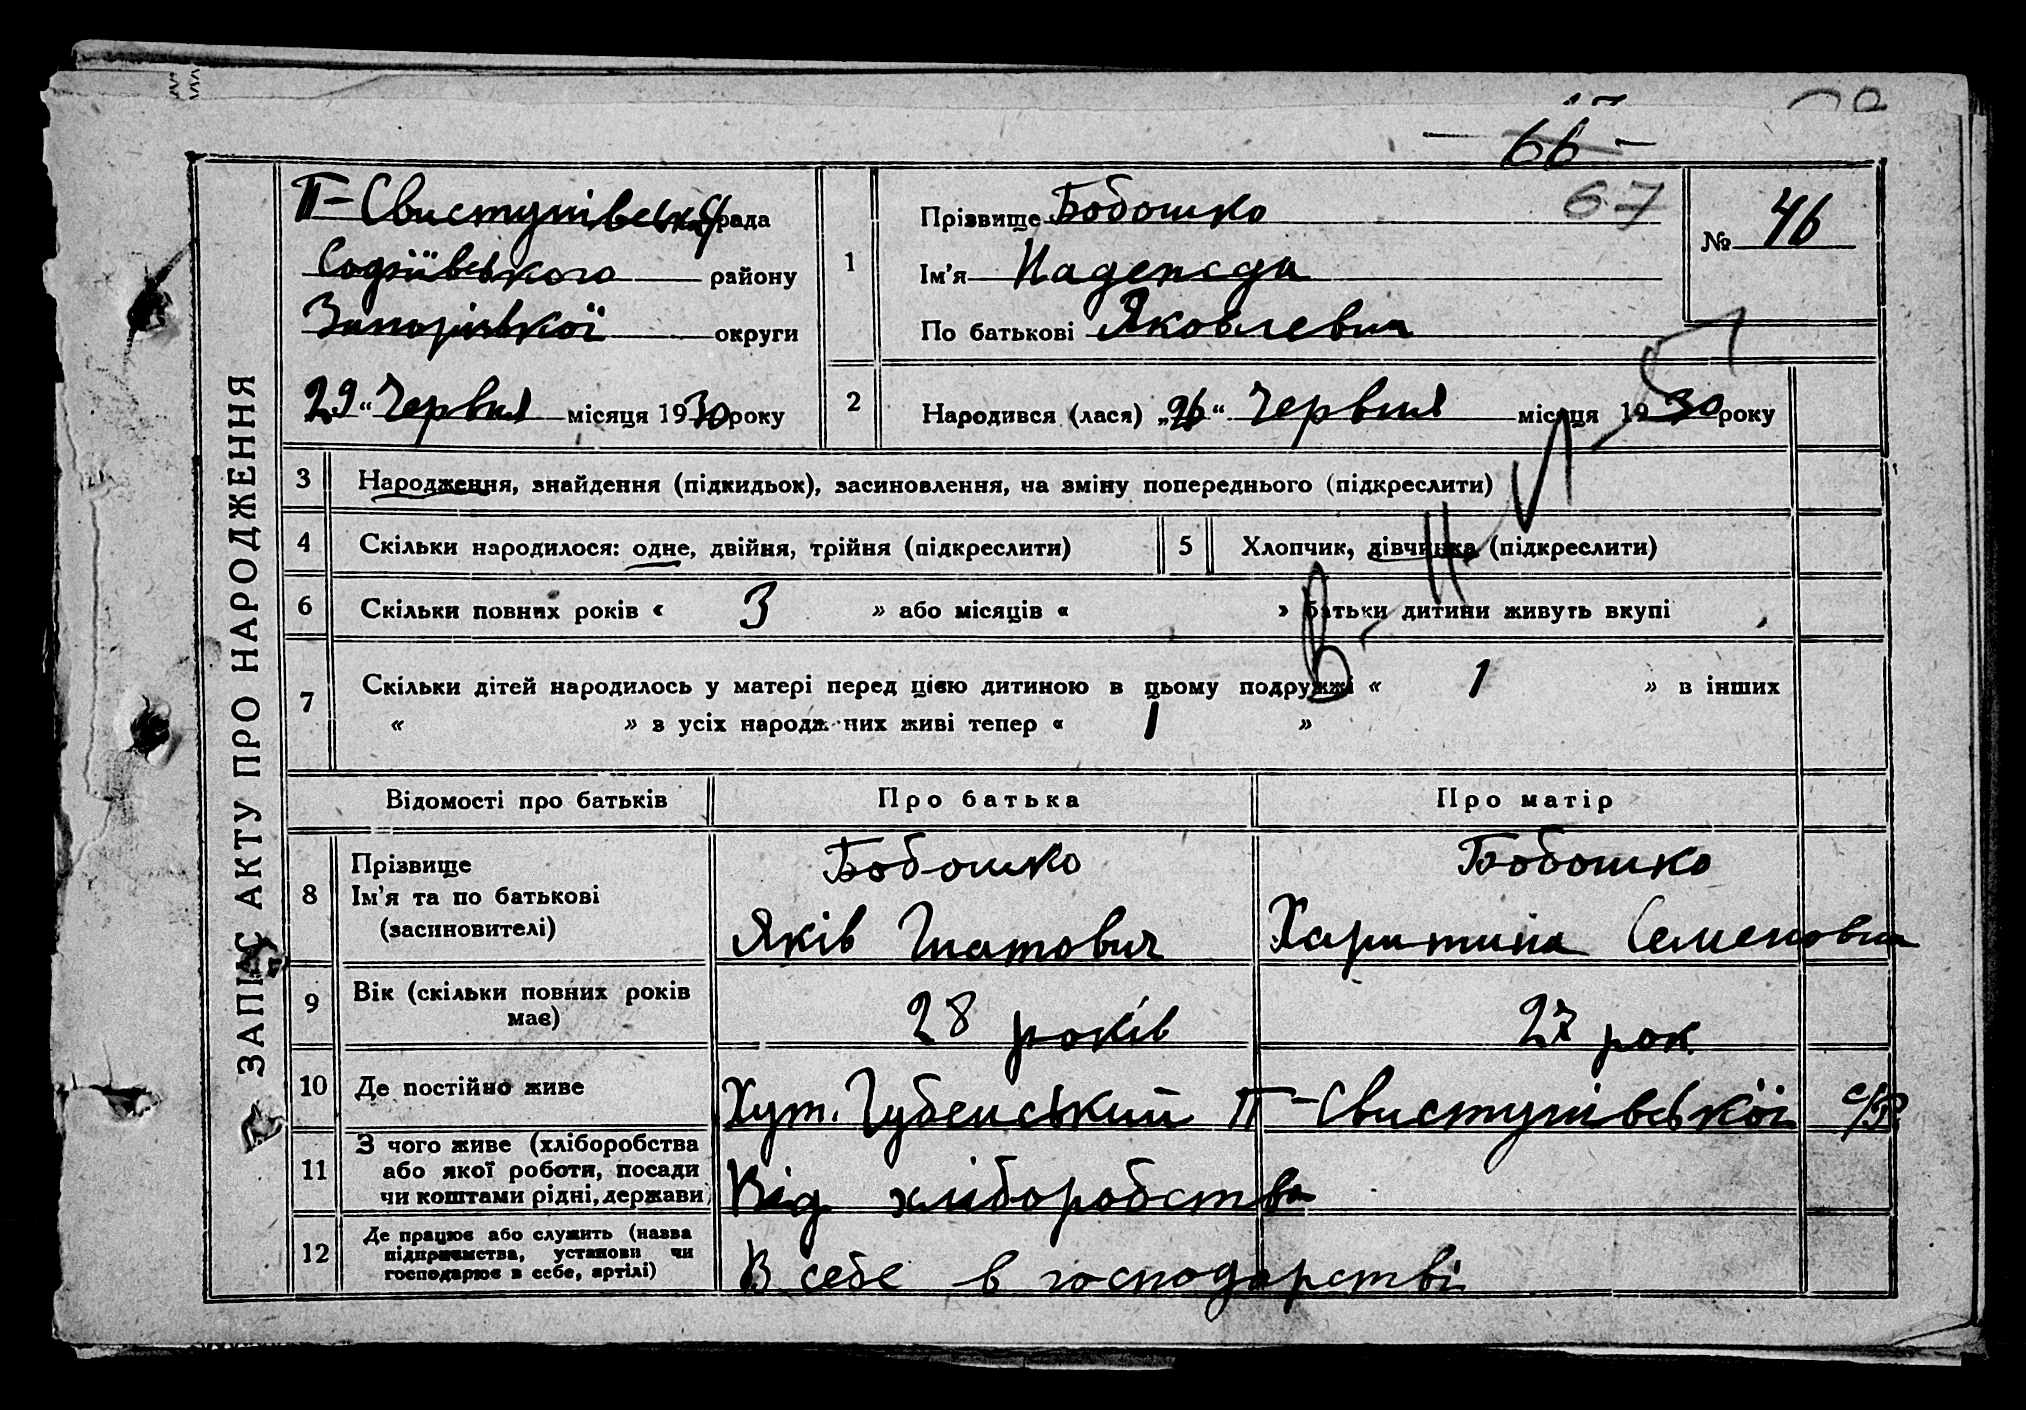 66
67
ЗАПИС АКТУ ПРО НАРОДЖЕННЯ
П-Свистунівська рада
Софіївського району
Запорізької округи
29 " Червня місяця 1930 року
1
Прізвище Бобошко
Ім'я Надежда
По батькові Яковлевна
№ 46
2
Народився (лася) „26" Червня місяця 1930 року
3 Народження, знайдення (підкидьок), засиновлення, на зміну попереднього (підкреслити)
4 Скільки народилося: одне, двійня, трійня (підкреслити)
5 Хлопчик, дівчинка (підкреслити)
6 Скільки повних років « 3 » або місяців « » батьки дитини живуть вкупі
7 Скільки дітей народилось у матері перед цією дитиною в цьому подружжі « 1 » в інших
« » в усіх народжених живі тепер « 1 »
Відомості про батьків Про батька Про матір
8 Прізвище
Ім'я та по батькові
(засиновителі)
Бобошко
Яків Гнатович
Бобошко
Харитина Семеновна
9 Вік (скільки повних років
має)
28 років
27 рок.
10 Де постійно живе
Хут. Губенський П-Свистунівської с/р.
11 З чого живе (хліборобства
або якої роботи, посади
чи коштами рідні, держави)
Від хліборобства
12 Де працює або служить (назва
підприємства, установи чи
господарює в себе, артілі)
В себе в господарстві